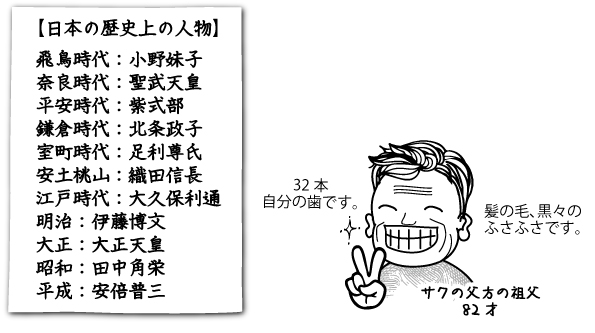 【日本の歴史上の人物】
飛鳥時代：小野妹子
奈良時代：聖武天皇
平安時代：紫式部
鎌倉時代：北条政子
室町時代：足利尊氏
安土桃山：織田信長
江戸時代：大久保利通
明治：伊藤博文
大正：大正天皇
昭和：田中角栄
平成：安倍普三
32本
自分の歯です。
髪の毛、黒々の
ふさふさです。
サクの父方の祖父
82才